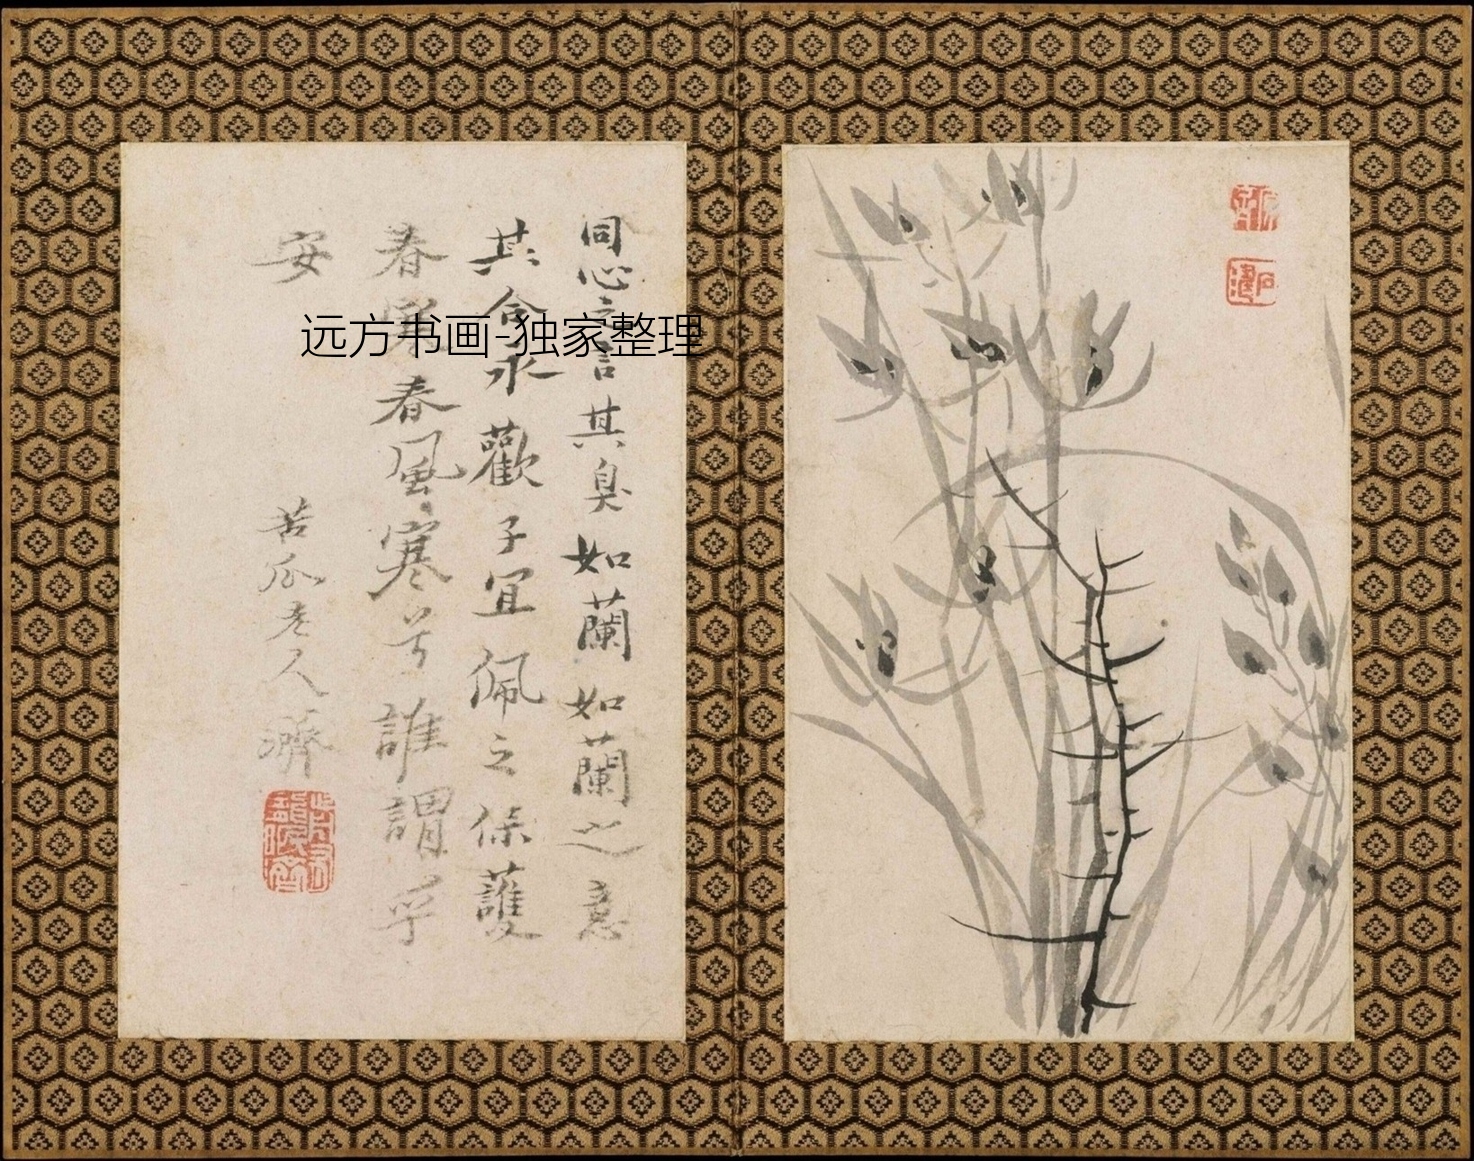 同心之言其臭如蘭如蘭之意
其永歡子宜佩之保護
春春風寒兮誰謂乎
安
苦瓜老人濟
前有龍眠濟
石濤
远方书画-独家整理